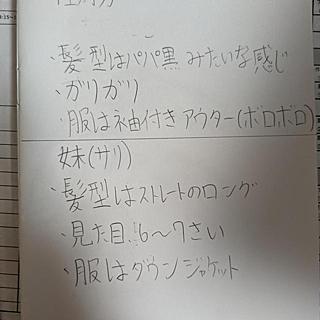 ・髪型はパパ黒みたいな感じ
・ガリガリ
・服は袖付きアウター(ボロボロ)
妹(サリ)
・髪型はストレートのロング
・見た目、6〜7さい
・服はダウンジャケット